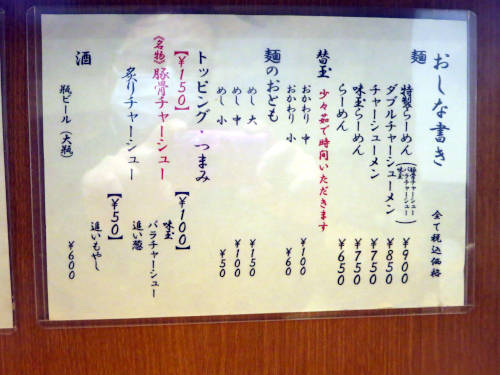 おしな書き
全て税込価格
麺
特製らーめん(豚骨チャーシュー バラチャーシュー 味玉) ¥900
ダブルチャーシューメン ¥850
チャーシューメン ¥750
味玉らーめん ¥750
らーめん ¥650
替玉 少々茹で時間いただきます
おかわり 中 ¥100
おかわり 小 ¥60
麺のおとも
めし 大 ¥150
めし 中 ¥100
めし 小 ¥50
トッピング・つまみ
【¥150】
《名物》豚骨チャーシュー
炙りチャーシュー
【¥100】
味玉
バラチャーシュー
追い葱
【¥50】
追いもやし
酒
瓶ビール(大瓶) ¥600